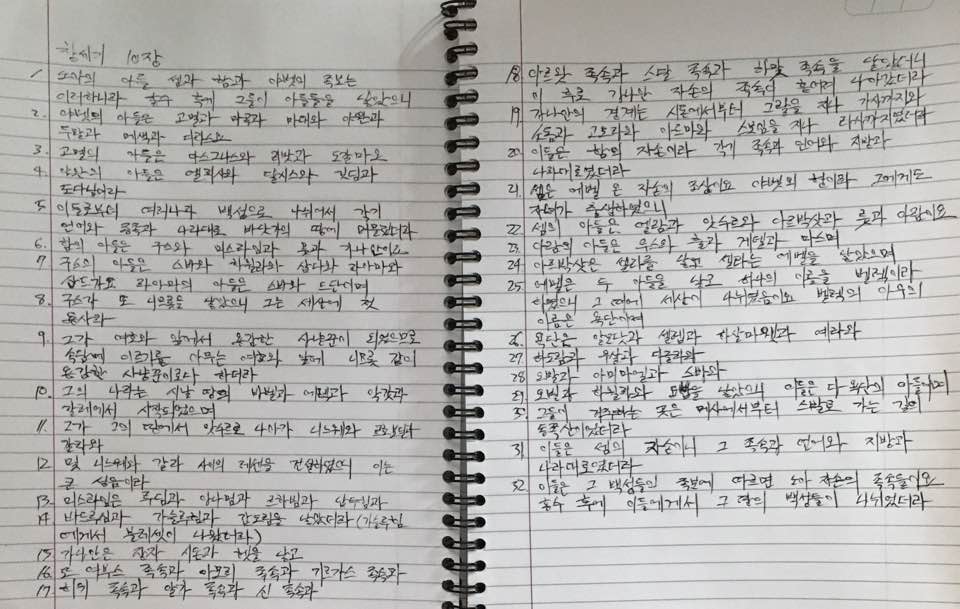 창세기 10장
1 노아의 아들 셈과 함과 야벳의 족보는
이러하니라 홍수 후에 그들이 아들들을 낳았으니
2. 야벳의 아들은 고멜과 마곡과 마대와 야완과
두발과 메섹과 디라스요
3. 고멜의 아들은 아스그나스와 리밧과 도갈마요
4. 야완의 아들은 엘리사와 달시스와 깃딤과
도다님이라
5. 이들로부터 여러나라 백성으로 나뉘어서 각기
언어와 종족과 나라대로 바닷가의 땅에 머물렀더라
6. 함의 아들은 구스와 미스라임과 붓과 가나안이요
7 구스의 아들은 스바와 하윌라와 삽다와 라아마와
삽드가요 라아마의 아들은 스바와 드단이며
8. 구스가 또 니므롯을 낳았으니 그는 세상에 첫
용사라
9. 그가 여호와 앞에서 용감한 사냥꾼이 되었으므로
속담에 이르기를 아무는 여호와 앞에 니므롯 같이
용감한 사냥꾼이로다 하더라
10. 그의 나라는 시날 땅의 바벨과 에렉과 악갓과
갈레에서 시작되었으며
11. 그가 그 땅에서 앗수르로 나아가 니느웨와
갈라와
12 및 니느웨와 갈라 사이의 레센을 건설하였으니 이는
큰 성읍이라
13. 미스라임은 루딤과 아나밈과 르하빔과 납두힘과
14. 바드루심과 가슬루힘과 갑도림을 낳았더라 (가슬루힘
에게서 블레셋이 나왔더라)
15. 가나안은 장자 시돈과 헷을 낳고
16. 또 여부스 족속과 아모리 족속과 기르가스 족속과
17. 히위 족속과 알가 족속과 신 족속과
18. 아르왓 족속과 스말 족속과 하맛 족속을 낳았더니
이 후로 가나안 자손의 족속이 흩어져 나아갔더라
19. 가나안의 경계는 시돈에서부터 그랄을 지나 가사까지와
소돔과 고모라와 아드마와 스보임을 지나 라사까지였더라
20. 이들은 함의 자손이라 각기 족속과 언어와 지방과
나라대로였더라
21. 셈은 에벨 온 자손의 조상이요 야벳의 형이라 그에게도
자녀가 출생하였으니
22 셈의 아들은 엘람과 앗수르와 아르박삿과 룻과 아람이요
23. 아람의 아들은 우스와 훌과 게델과 마스며
24 아르박삿은 셀라를 낳고 셀라는 에벨을 낳았으며
25. 에벨은 두 아들을 낳고 하나의 이름을 벨렉이라
하였으니 그 때에 세상이 나뉘었음이요 벨렉의 아우의
이름은 욕단이며
26. 욕단은 알모닷과 셀렙과 하살마웻과 예라와
27. 하도람과 우살과 디글라와
28 오발과 아비마엘과 스바와
29 오빌과 하윌라와 요밥을 낳았으니 이들은 다 욕단의 아들이며
30 그들이 거주하는 곳은 메사에서부터 스발로 가는 길의
동쪽 산이었더라
31 이들은 셈의 자손이니 그 족속과 언어와 지방과
나라대로였더라
32 이들은 그 백성들의 족보에 따르면 노아 자손의 족속들이요
홍수 후에 이들에게서 그 땅의 백성들이 나뉘었더라